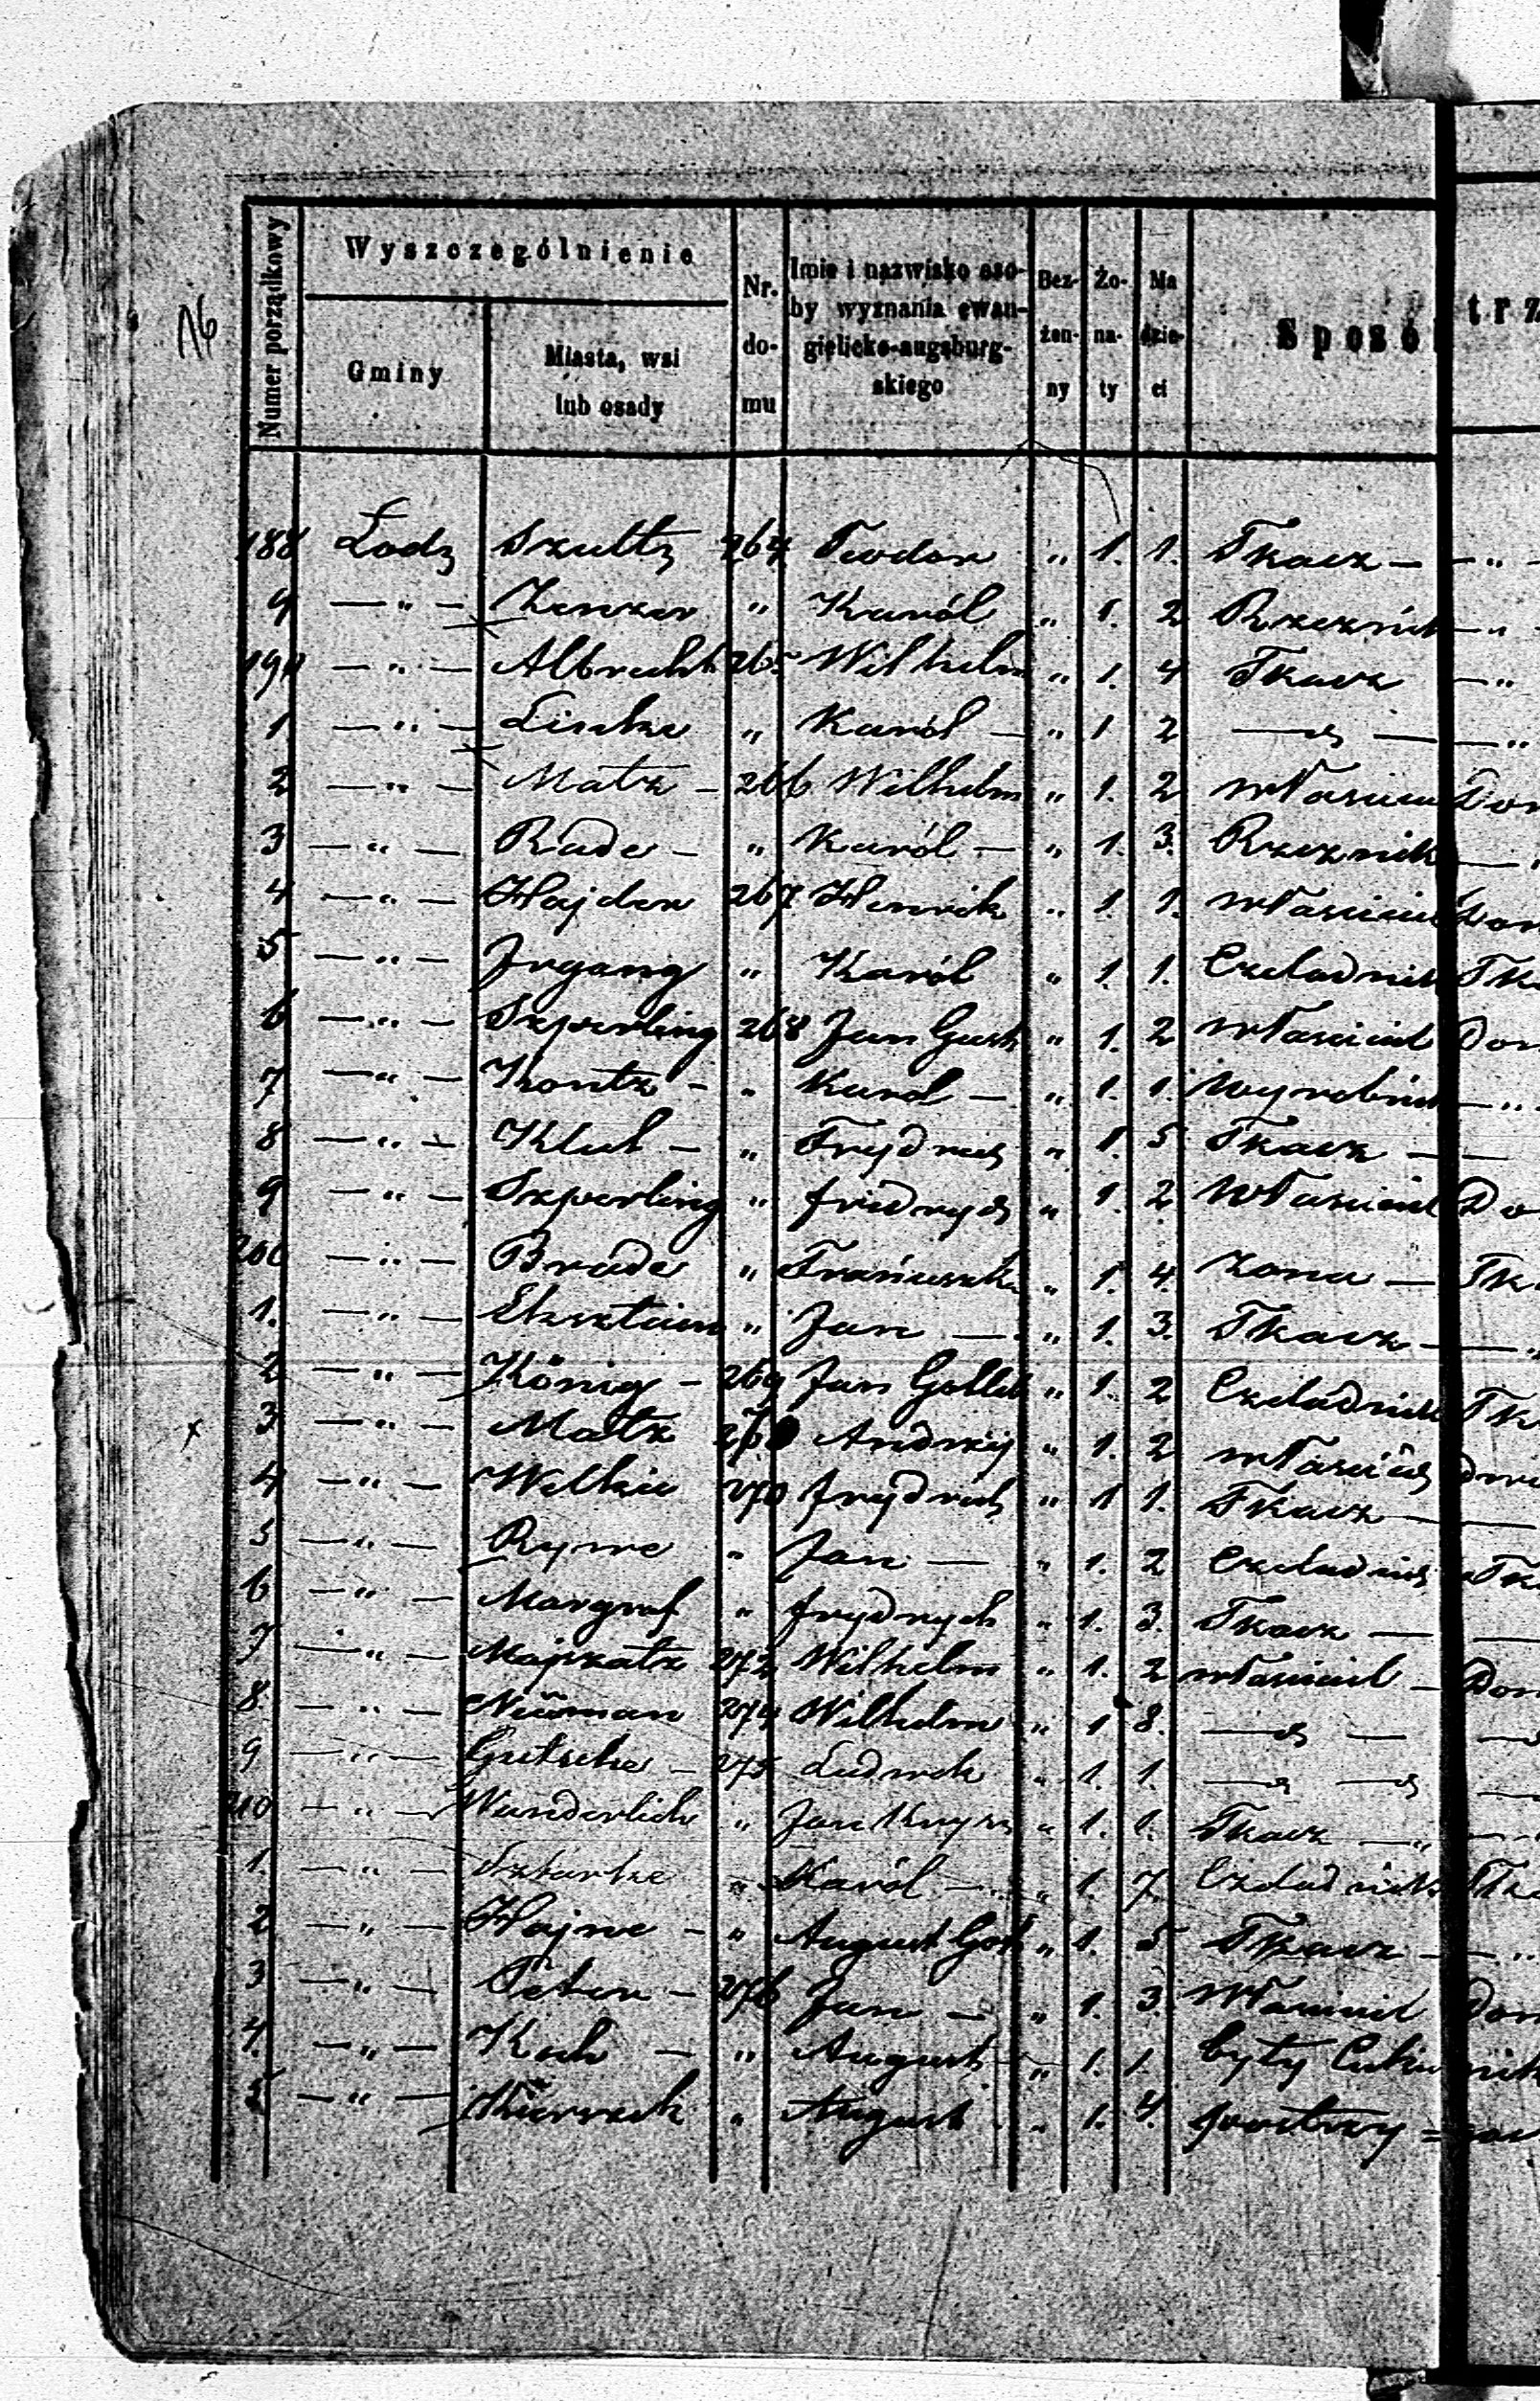 16
Numer porządkowy
Wyszczególnienie
Gminy
Miasta, wsi lub osady
Nr. domu
Imie i nazwisko osoby wyznania ewangielicko-augsburgskiego
Bezżenny
Żonaty
Ma dzieci
Sposó trz
188 Łodz Szultz 264 Teodor " 1. 1. Tkacz — — " —
9 — " — " Karól " 1. 2 — "
190 — " — Albrecht 265 Wilhelm " 1. 4 Tkacz — "
1 — " — Linke " Karól — " 1 2 — " —
2 — " — Matz — 266 Wilhelm " 1. 2 własciciel Dom
3 — " — Rade — " Karól — " 1. 3. Rzeznik —
4 — " — Hajder 267 Henrik " 1. 1. własciciel Dom
5 — " — Irgang " Karól " 1. 1. Czeladnik Tk
6 — " — Szperling 268 Jan Gust " 1. 2 własciciel Dom
7 — " — Kontz — " Karol — " 1. 1. Wyrobnik — "
8 — " — — " " 1. 5 Tkacz — —
9 — " — Szperling " fridrych " 1. 2 Własciciel Do
200 — " — Brade " Franciszka " 1 4. Zona — Tk
1. — " — Eksztain " Jan — " 1. 3. Tkacz — — "
2 — " — König — 269 Jan Gottlib " 1. 2 Czeladnik Tk
x 3 — " — Matz Andrzej " 1. 2 własciciel
4 — " — Welkie 270 frydrich " 1 1. Tkacz —
5 — " — " Jan — " 1. 2 Czeladnik Tk
6 — " — Margraf " frydrych " 1. 3. Tkacz — —
7 — " — Majzatz 272 Wilhelm " 1. 2 własciciel — Dom
8. — " — Neüman 274 Wilhelm " 1 8. — —
9 — " — Gutsche — 275 Ludwik " 1. 1. — —
210 — " — Wunderlich " Jan " 1. 1. Tkacz — "
1. — " — Sztarke " Karól — " 1. 7 Czeladnik Tk
2 — " — Hajne — " August Got " 1. 5 Tkacz — — "
3 — " — Peter — 276 Jan — " 1. 3 Własciciel Dom
4. — " — Koch — " August — " 1. 1. były
5 — " — " August " 1. 4.